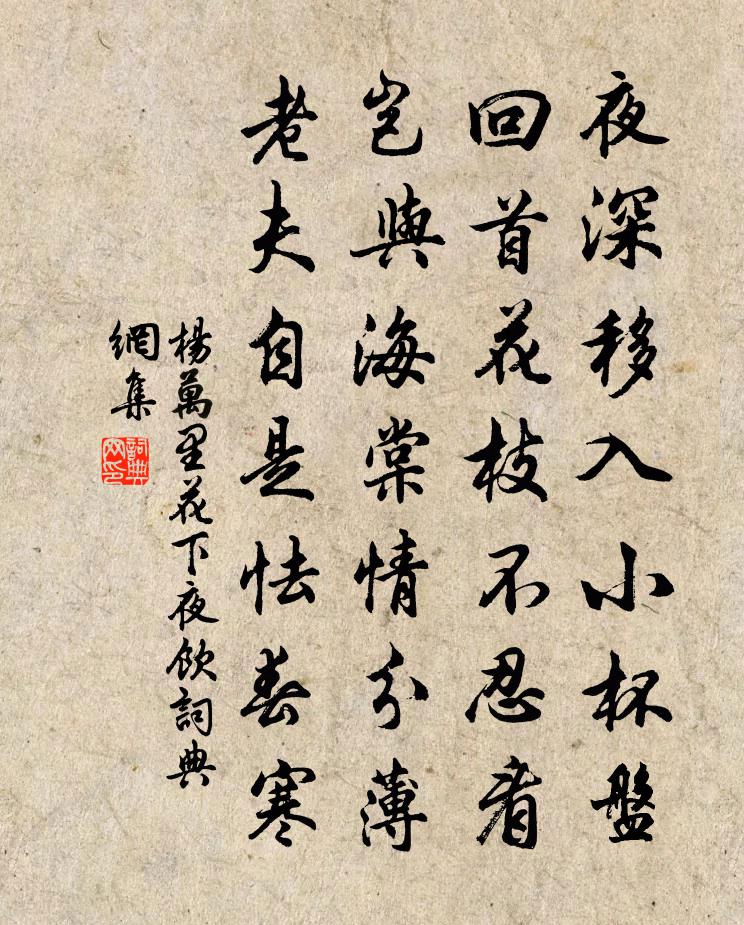 夜深移入小杯盤
回首花枝不忍看
豈與海棠情分薄
老夫自是怯春寒
楊萬里花下夜飲詞典
網集
詞典
网印